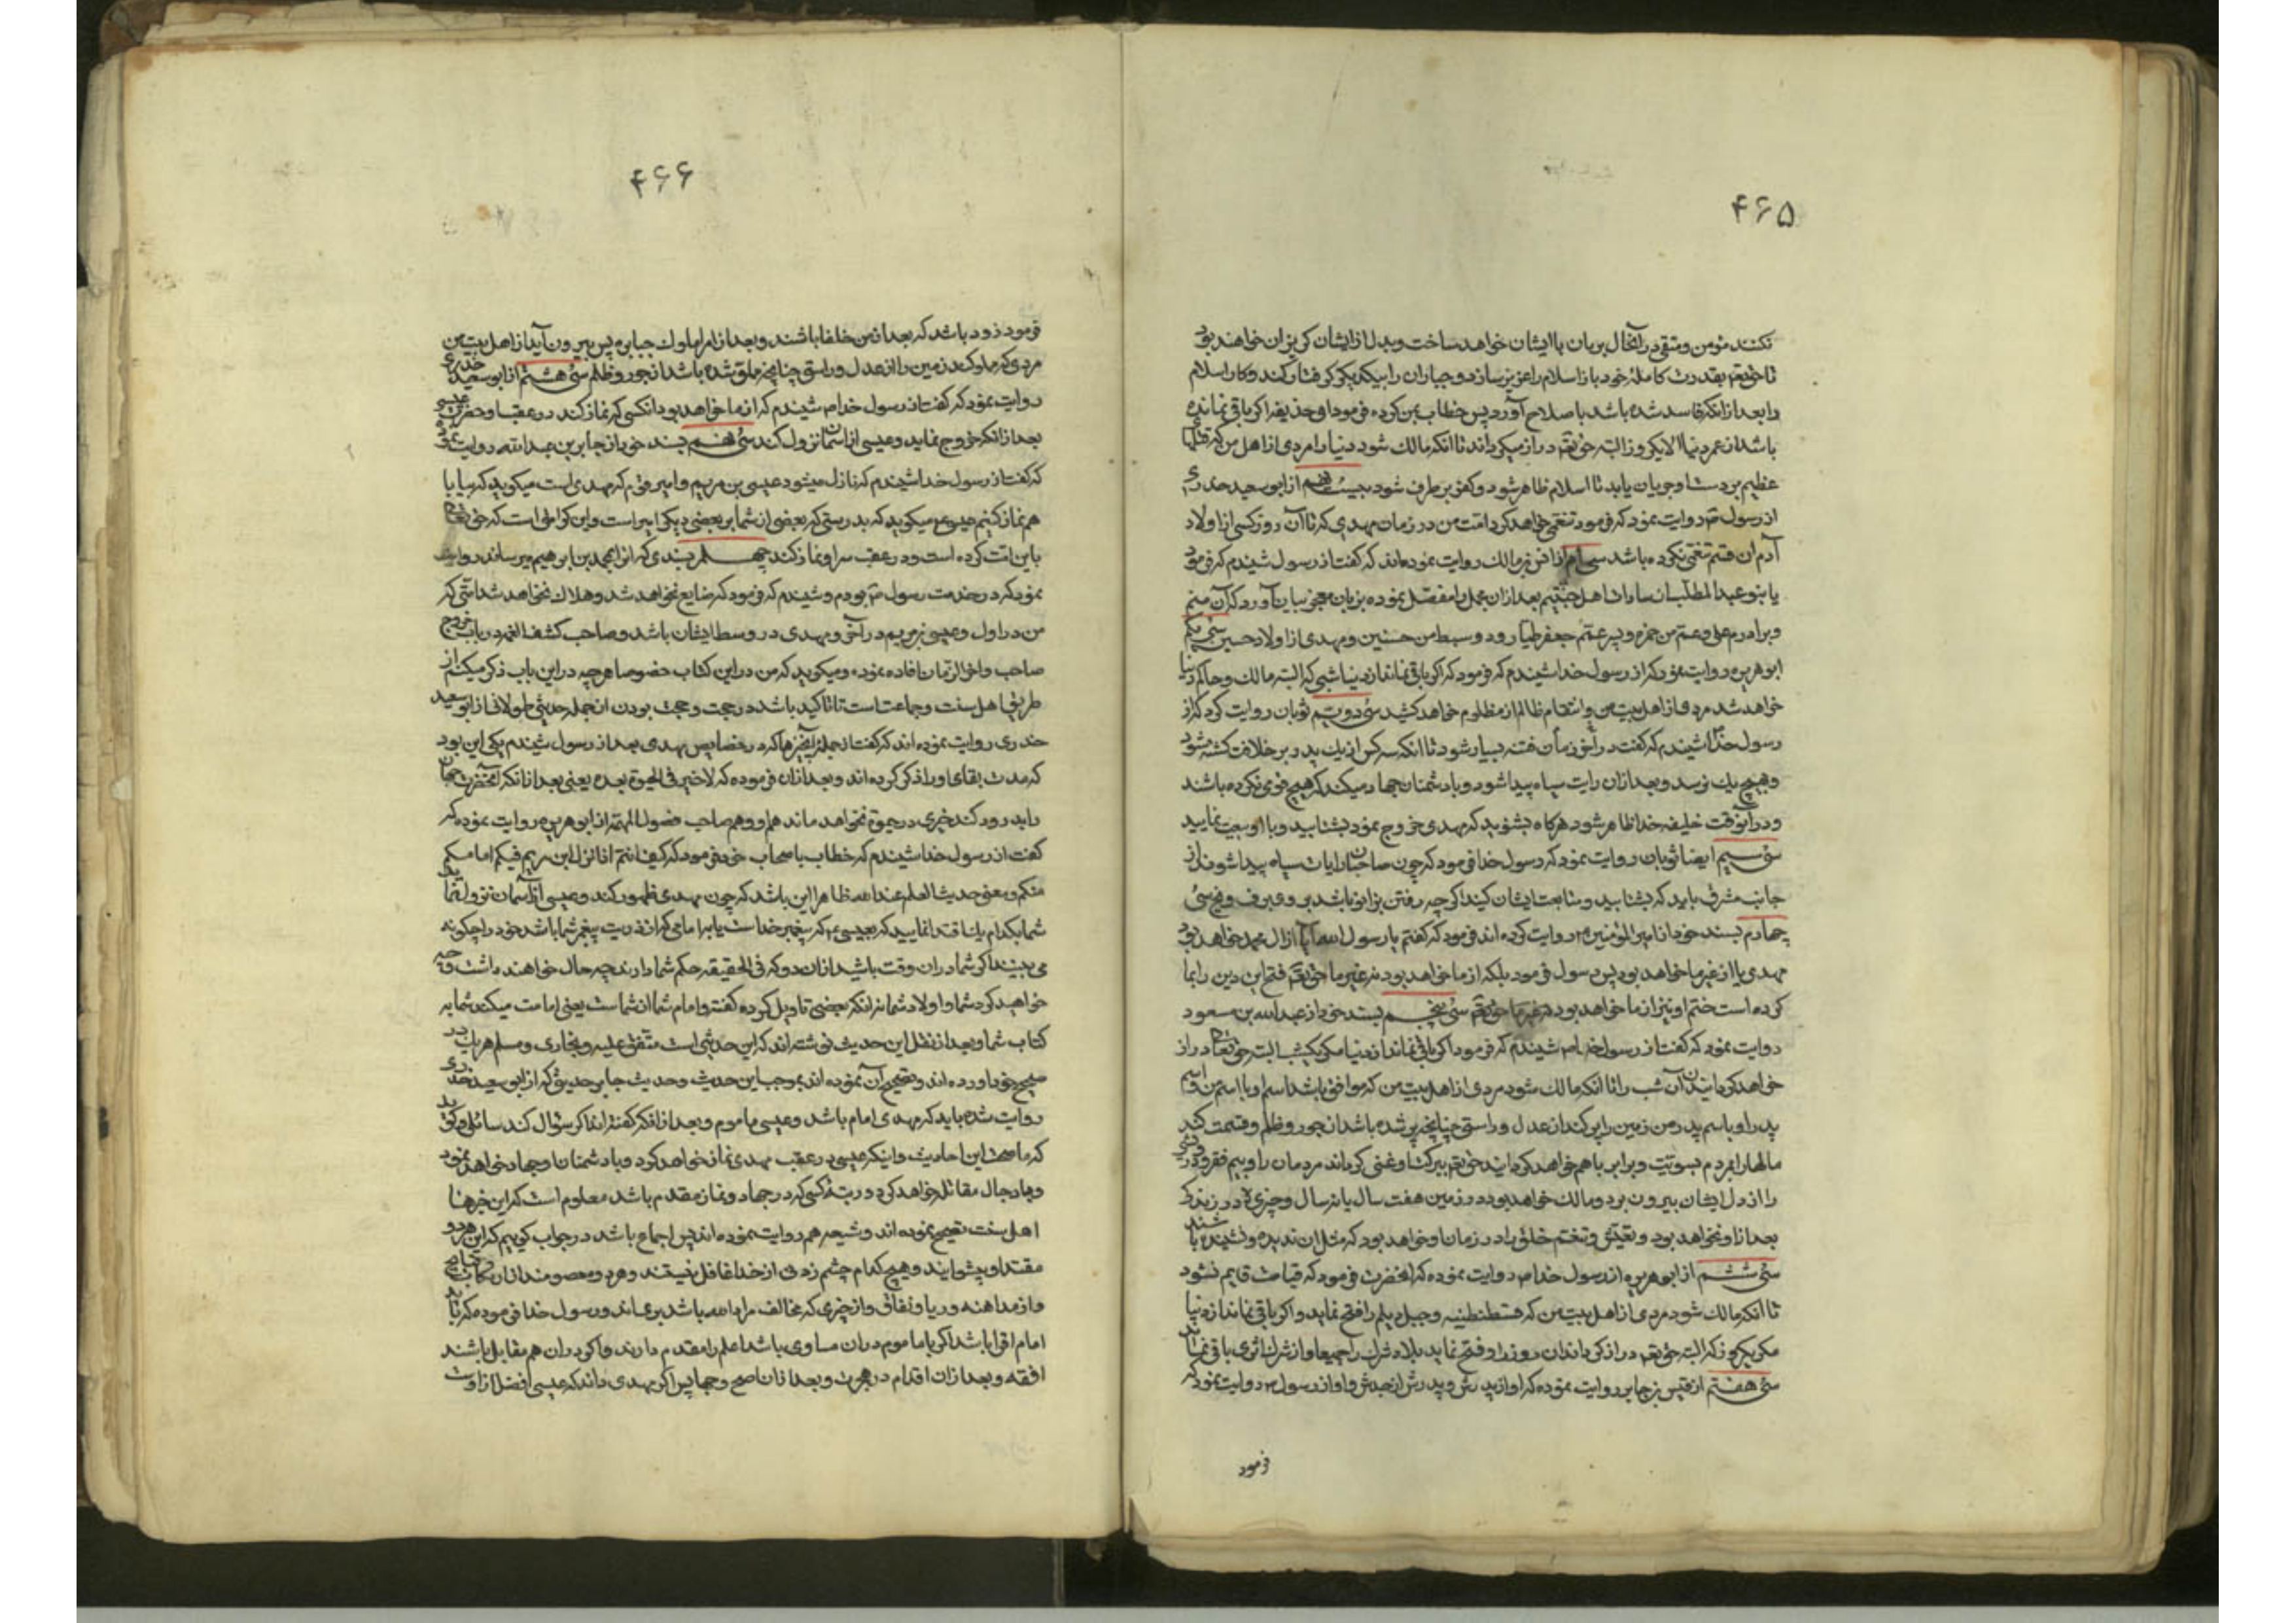 ۴۶۵
نکنند مؤمن و متقی در آنحال بزبان با ایشان خواهد ساخت و بدل از ایشان گریزان خواهند بود
تا حق تعالی بقدرت کاملهٔ خود باز اسلام را عزیز سازد و جباران را بیکدیگر گرفتار کند و کار اسلام
را بعد از انکه فاسد شده باشد باصلاح آورد پس خطاب بمن کرده فرمود او حذیفه اگر باقی نمانده
باشد از عمر دنیا الا یکروز البته حق تعالی دراز میگرداند تا انکه مالک شود دنیا را مردی از اهل من که
عظیم بر دست او جریان یابد تا اسلام ظاهر شود و کفر بر طرف شود از ابو سعید خدری
از رسول ص روایت نمود که فرمود تنعمی خواهد کرد امت من در زمان مهدی که تا آن روز کسی از اولاد
آدم ان قسم تنعمی نکرده باشد سی ام از انس بن مالک روایت نموده اند که گفت از رسول شنیدم که فرمود
یا بنو عبد المطلب سادات اهل جنتیم بعد از آن مجمل را مفصل نموده بزبان معجز بیان آورد که آن منم
و برادرم علی و عم من حمزه و پسر عمم جعفر طیار و دو سبط من حسنین و مهدی از اولاد حسین سی یکم
ابو هریره روایت نمود که از رسول خدا شنیدم که فرمود که اگر باقی نماند از دنیا شبی که البته مالک و حاکم دنیا
خواهد شد مردی از اهل بیت من و انتقام ظالم از مظلوم خواهد کشید سی دویم ثوبان روایت کرد که از
رسول خدا شنیدم که گفت در آخر زمان فتنه بسیار شود تا انکه سه کس از یک پدر بر خلافت کشته شود
و بهیچ یک نرسد و بعد از ان رایت سیاه پیدا شود و با دشمنان جهاد میکند که هیچ قومی نکرده باشند
و در آنوقت خلیفه خدا ظاهر شود هرگاه بشنوید که مهدی خروج نمود بشتابید و با او بیعت نمایید
سی سیم ایضا ثوبان روایت نمود که رسول خدا فرمود که چون صاحبان رایات سیاه پیدا شوند از
جانب مشرق باید که بشتابید و متابعت ایشان کنید اگر چه رفتن بزانو باشد بر و برف و یخ سی
چهارم بسند خود از امیر المؤمنین ع روایت کرده اند فرمود که گفتم یا رسول الله آیا از ال محمد خواهد بود
مهدی یا از غیر ما خواهد بود پس رسول فرمود بلکه از ما خواهد بود نه غیر ما حق تعالی فتح این دین را بما
کرده است ختم او نیز از ما خواهد بود سی پنجم بسند خود از عبدالله بن مسعود
روایت نمود که گفت از رسول خدا ص شنیدم که فرمود اگر باقی نماند از دنیا مگر یکشب البته حق تعالی دراز
خواهد گردانید آن شب را تا انکه مالک شود مردی از اهل بیت من که موافق باشد اسم او با اسم من و اسم
پدر او باسم پدر من زمین را پر کند از عدل و راستی چنانچه پر شده باشد از جور و ظلم و قسمت کند
مالها را بمردم بسویت و برابر با هم خواهد گردانید حق تعالی ببرکت او غنی گرداند مردمان را و بیم فقر و
را از دل ایشان بیرون برد و مالک خواهد بود در زمین هفت سال یا نه سال و خیری در زندگی
بعد از او نخواهد بود و تعیش و تنعم خلق را در زمان او خواهد بود که مثل ان ندیده و نشنیده باشند
سی ششم از ابو هریره از رسول خدا ص روایت نموده که انحضرت فرمود که قیامت قایم نشود
تا انکه مالک شود مردی از اهل بیت من که قسطنطنیه و جبل دیلم را فتح نماید و اگر باقی نماند از دنیا
مگر یکروز که البته حق تعالی دراز گرداند ان روز را و فتح نماید بلاد شرک را جمیعا و از شرک اثری باقی نماند
سی هفتم از قیس بن جابر روایت نموده که او از پدرش و پدرش از جدش و او از رسول ص روایت نمود که
فرمود
۴۶۶
فرمود زود باشد که بعد از من خلفا باشند و بعد از امرا ملوک جبابره پس بیرون آید از اهل بیت من
مردی که مملو کند زمین را از عدل و راستی چنانچه مملو شده باشد از جور و ظلم سی هشتم از ابو سعید خدری
روایت نمود که گفت از رسول خدا ص شنیدم که از ما خواهد بود انکسی که نماز کند در عقب او حضرت عیسی
بعد از انکه خروج نماید و عیسی از اسمان نزول کند سی نهم بسند خود از جابر بن عبد الله روایت نموده
که گفت از رسول خدا شنیدم که نازل میشود عیسی بن مریم و امیر قوم که مهدی است میگوید که بیا با
هم نماز کنیم عیسی ع میگوید که بدرستی که بعضی از شما بر بعضی دیگر امیر است و این کرامتی است که حق تعالی
باین امت کرده است و در عقب سر او نماز کند چهلم بسندی که از ابو محمد بن ابرهیم میرساند روایت
نمود که در خدمت رسول ص بودم و شنیدم که فرمود که ضایع نخواهد شد و هلاک نخواهد شد امتی که
من در اول و عیسی بن مریم در آخر و مهدی در وسط ایشان باشد و صاحب کشف الغمه در باب خروج
صاحب و احوال زمان افاده نموده و میگوید که من در این کتاب خصوصا هر چه در این باب ذکر میکنم از
طریق اهل سنت و جماعت است تا تاکید باشد در حجت و حجت بودن از جمله حدیثی طولانی از ابو سعید
خدری روایت نموده اند که گفت از جمله چیزها که در خصایص مهدی بعد از رسول شنیدم یکی این بود
که مدت بقای او را ذکر کرده اند و بعد از ان فرموده که لا خیر فی الحیوة بعده یعنی بعد از انکه آنحضرت جهان
را بدرود کند خیری در حیوة نخواهد ماند هم او و هم صاحب فصول المهمه از ابو هریره روایت نموده که
گفت از رسول خدا شنیدم که خطاب باصحاب خود فرمود که کیف انتم اذا نزل ابن مریم فیکم امامکم
منکم و معنی حدیث العلم عند الله ظاهرا این باشد که چون مهدی ظهور کند و عیسی از آسمان نزول نماید
شما بکدام یک اقتدا نمایید که بعیسی ع که پیغمبر خداست یا بر امامی که از ذریت پیغمبر شما باشد خود را چگونه
می بینید اگر شما در ان وقت باشید از ان دو که فی الحقیقه حکم شما دارند چه حال خواهند داشت و چه
خواهید کرد شما و اولاد شما نه انکه بعضی تاویل کرده گفته و امام شما از شماست یعنی امامت میکند شما به
کتاب شما و بعد از نقل این حدیث نوشته اند که این حدیثی است متفق علیه و بخاری و مسلم هر یک در
صحیح خود آورده اند و تصحیح آن نموده اند بموجب این حدیث و حدیث جابر حدیثی که از ابو سعید خدری
روایت شده باید که مهدی امام باشد و عیسی ماموم و بعد از انکه گفته اند اگر سؤال کند سائلی و گوید
که با صحت این احادیث و اینکه عیسی در عقب مهدی نماز خواهد کرد و با دشمنان او جهاد خواهد نمود
و با دجال مقاتله خواهد کرد و رتبهٔ کسی که در جهاد و نماز مقدم باشد معلوم است که این خبرها
اهل سنت تصحیح نموده اند و شیعه هم روایت نموده اند پس اجماع باشد در جواب گوییم که این هر دو
مقتدا و پیشوایند و هیچ کدام چشم زدنی از خدا غافل نیستند و هر دو معصومند از ارتکاب قبایح
و از مداهنه و ریا و نفاق و از چیزی که مخالف مراد الله باشد بری اند و رسول خدا فرموده که باید
امام اقرا باشد اگر با ماموم در ان مساوی باشد اعلم را مقدم دارند و اگر در ان هم مقابل باشند
افقه و بعد از ان اقدم در هجرت و بعد از ان اصبح وجها پس اگر مهدی داند که عیسی افضل از اوست